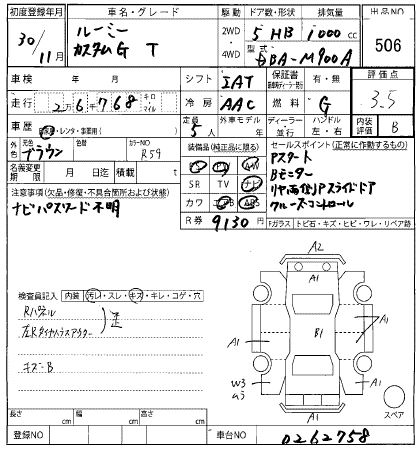 初度登録年月 車名・グレード 駆動 ドア数・形状 排気量 出品NO
30/11月 ルーミー カスタムG T 2WD 4WD 5 HB 1000 cc 506
型式 DBA-M900A
車検 年 月 シフト IAT 保証書 有・無 評価点
走行 2万6千768 キロ・マイル 冷房 AAC 燃料 G 3.5
車歴 自家用・レンタ・事業用( ) 定員 5人 外車モデル ディーラー 並行 ハンドル 左・右 内装評価 B
外色 元色 ブラウン 色替 カラーNO R59 装備品(純正品に限る) セールスポイント(正常に作動するもの)
名義変更期限 月 日迄 積載量 t SR TV ナビ
カワ エアB ABS
R券 9130円
Pスタート
Bモニター
リヤ両側Pスライドドア
クルーズコントロール
注意事項(欠品・修復・不具合箇所および状態)
ナビパスワード不明
Fガラス トビ石・キズ・ヒビ・ワレ・リペア跡
検査員記入 内装 汚レ・スレ・キズ・キレ・コゲ・穴
Rパネル
キズ-B
A2
A1
A1 B1 A1
W3 ムラ A1
A1
スペア
長さ cm 幅 cm 高さ cm
登録NO 車台NO 0262758